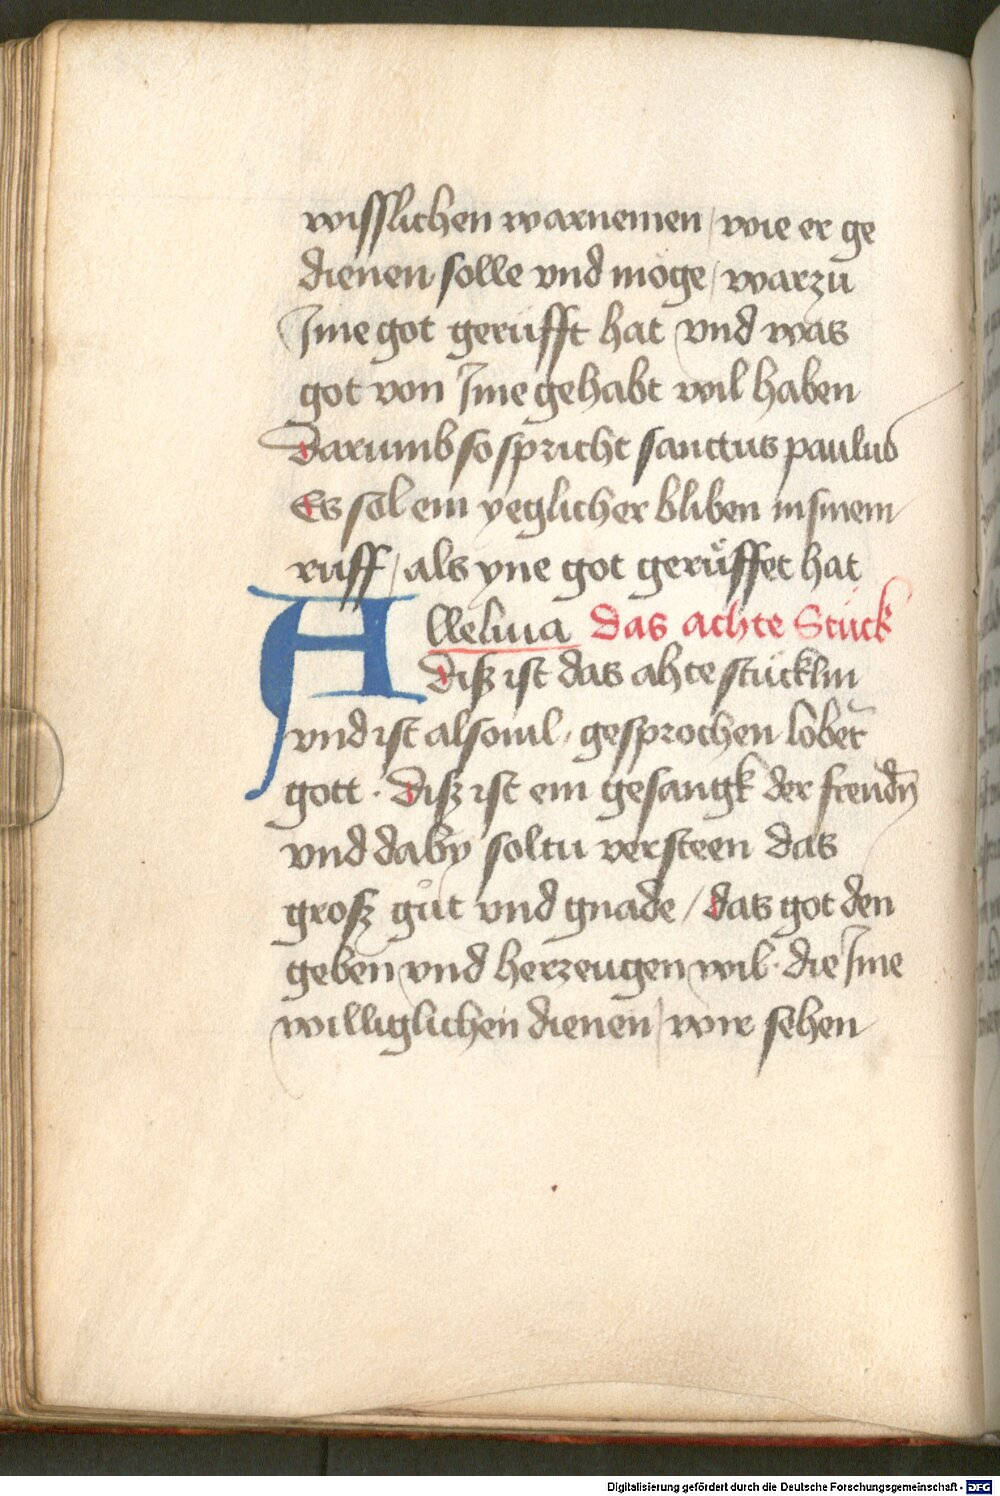 wisslichen warnemen / wie er ge
dienen solle vnd möge / warzu
Jme got gerüfft hat vnd was
got von Jme gehabt wil haben
Darumb so spricht sanctus paulus
Es sol ein yeglicher bliben in sinem
ruff / als yne got gerůffet hat
Alleluia das achte Stück
Disz ist das ahte stücklin
vnd ist alsouil / gesprochen lobet̄
gott · Disz ist ein gesangk der freudn̄
vnd daby soltu versteen das
grosz gůt vnd gnade / das got den
geben vnd herzeugen wil · die Jme
williglichen dienen / wir sehen
Digitalisierung gefördert durch die Deutsche Forschungsgemeinschaft - DFG